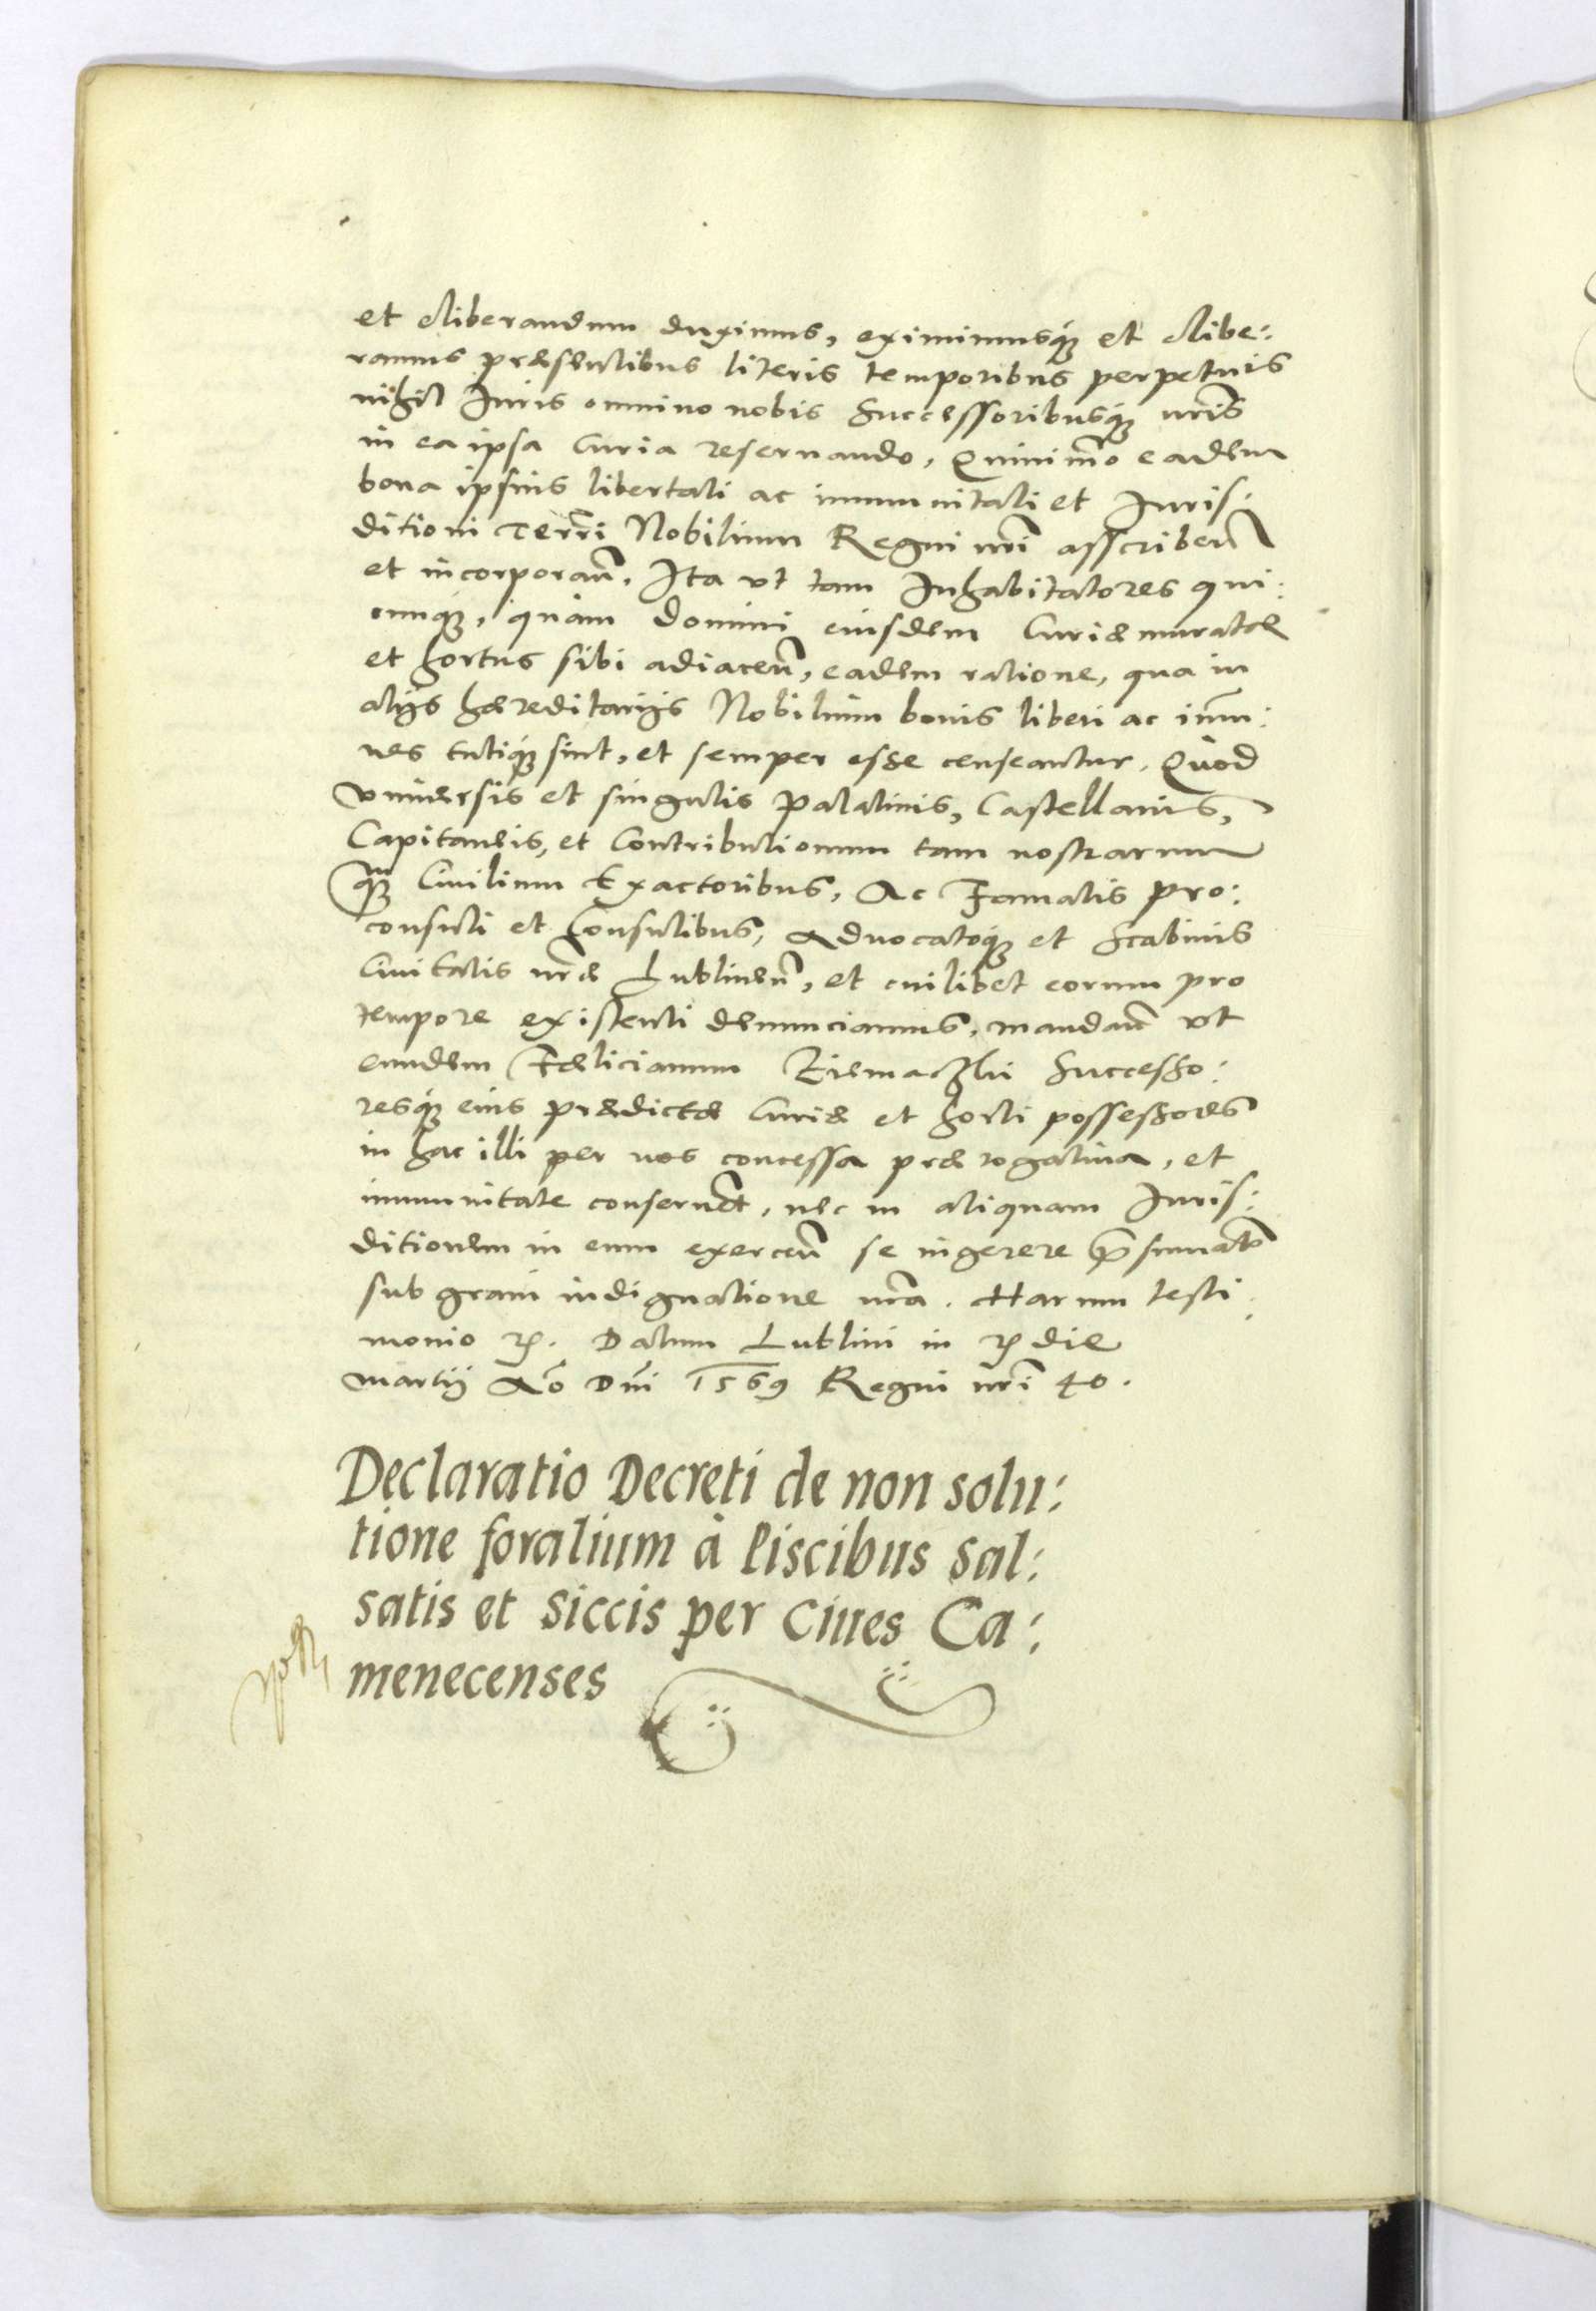 et eliberandum duximus, eximimusq́ꝫ et elibe:
ramus præsentibus literis temporibus perpetuis
nihil Iuris omnino nobis Successoribusq́ꝫ nr̃is
in ea ipsa Curia reseruando, Quinim̃o eadem
bona ipsius libertati ac immunitati et Iuris:
ditioni Terr̃i Nobilium Regni nr̃i asscriben̄
et incorporan̄. Ita vt tam Inhabitatores qui:
cunq́ꝫ, quàm Domini eiusdem Curiæ muratæ
et hortus sibi adiacen̄, eadem ratione, qua in
alijs hæreditarijs Nobilium bonis liberi ac im̄u:
nes tutiq́ꝫ sint, et semper esse censeantur. Quod
vniuersis et singulis Palatinis, Castellanis,
Capitaneis, et Contributionum tam nostrarum
qꝫ Ciuilium Exactoribus, Ac Famatis Pro:
consuli et Consulibus, Aduocatoq́ꝫ et Scabinis
Ciuitatis nr̃æ Lublinen̄, et cuilibet eorum pro
tempore existenti denunciamus, mandan̄ vt
eundem Fælicianum Successo:
resq́ꝫ eius prædictæ Curiæ et horti possessores
in hac illi per nos concessa præ rogatiua, et
immunitate conseruet, nec in aliquam Iuris:
ditionem in eum exercen̄ se ingerere p̄sumat
sub graui indignatione nr̃a. Harum testi:
monio ꝝ. Datum Lublini in ꝝ die
martij Ao᷈ Dn̄i 1569 Regni nr̃i 40.
Declaratio Decreti de non solu:
tione foralium à Piscibus Sal:
satis et Siccis per Ciues Ca:
menecenses